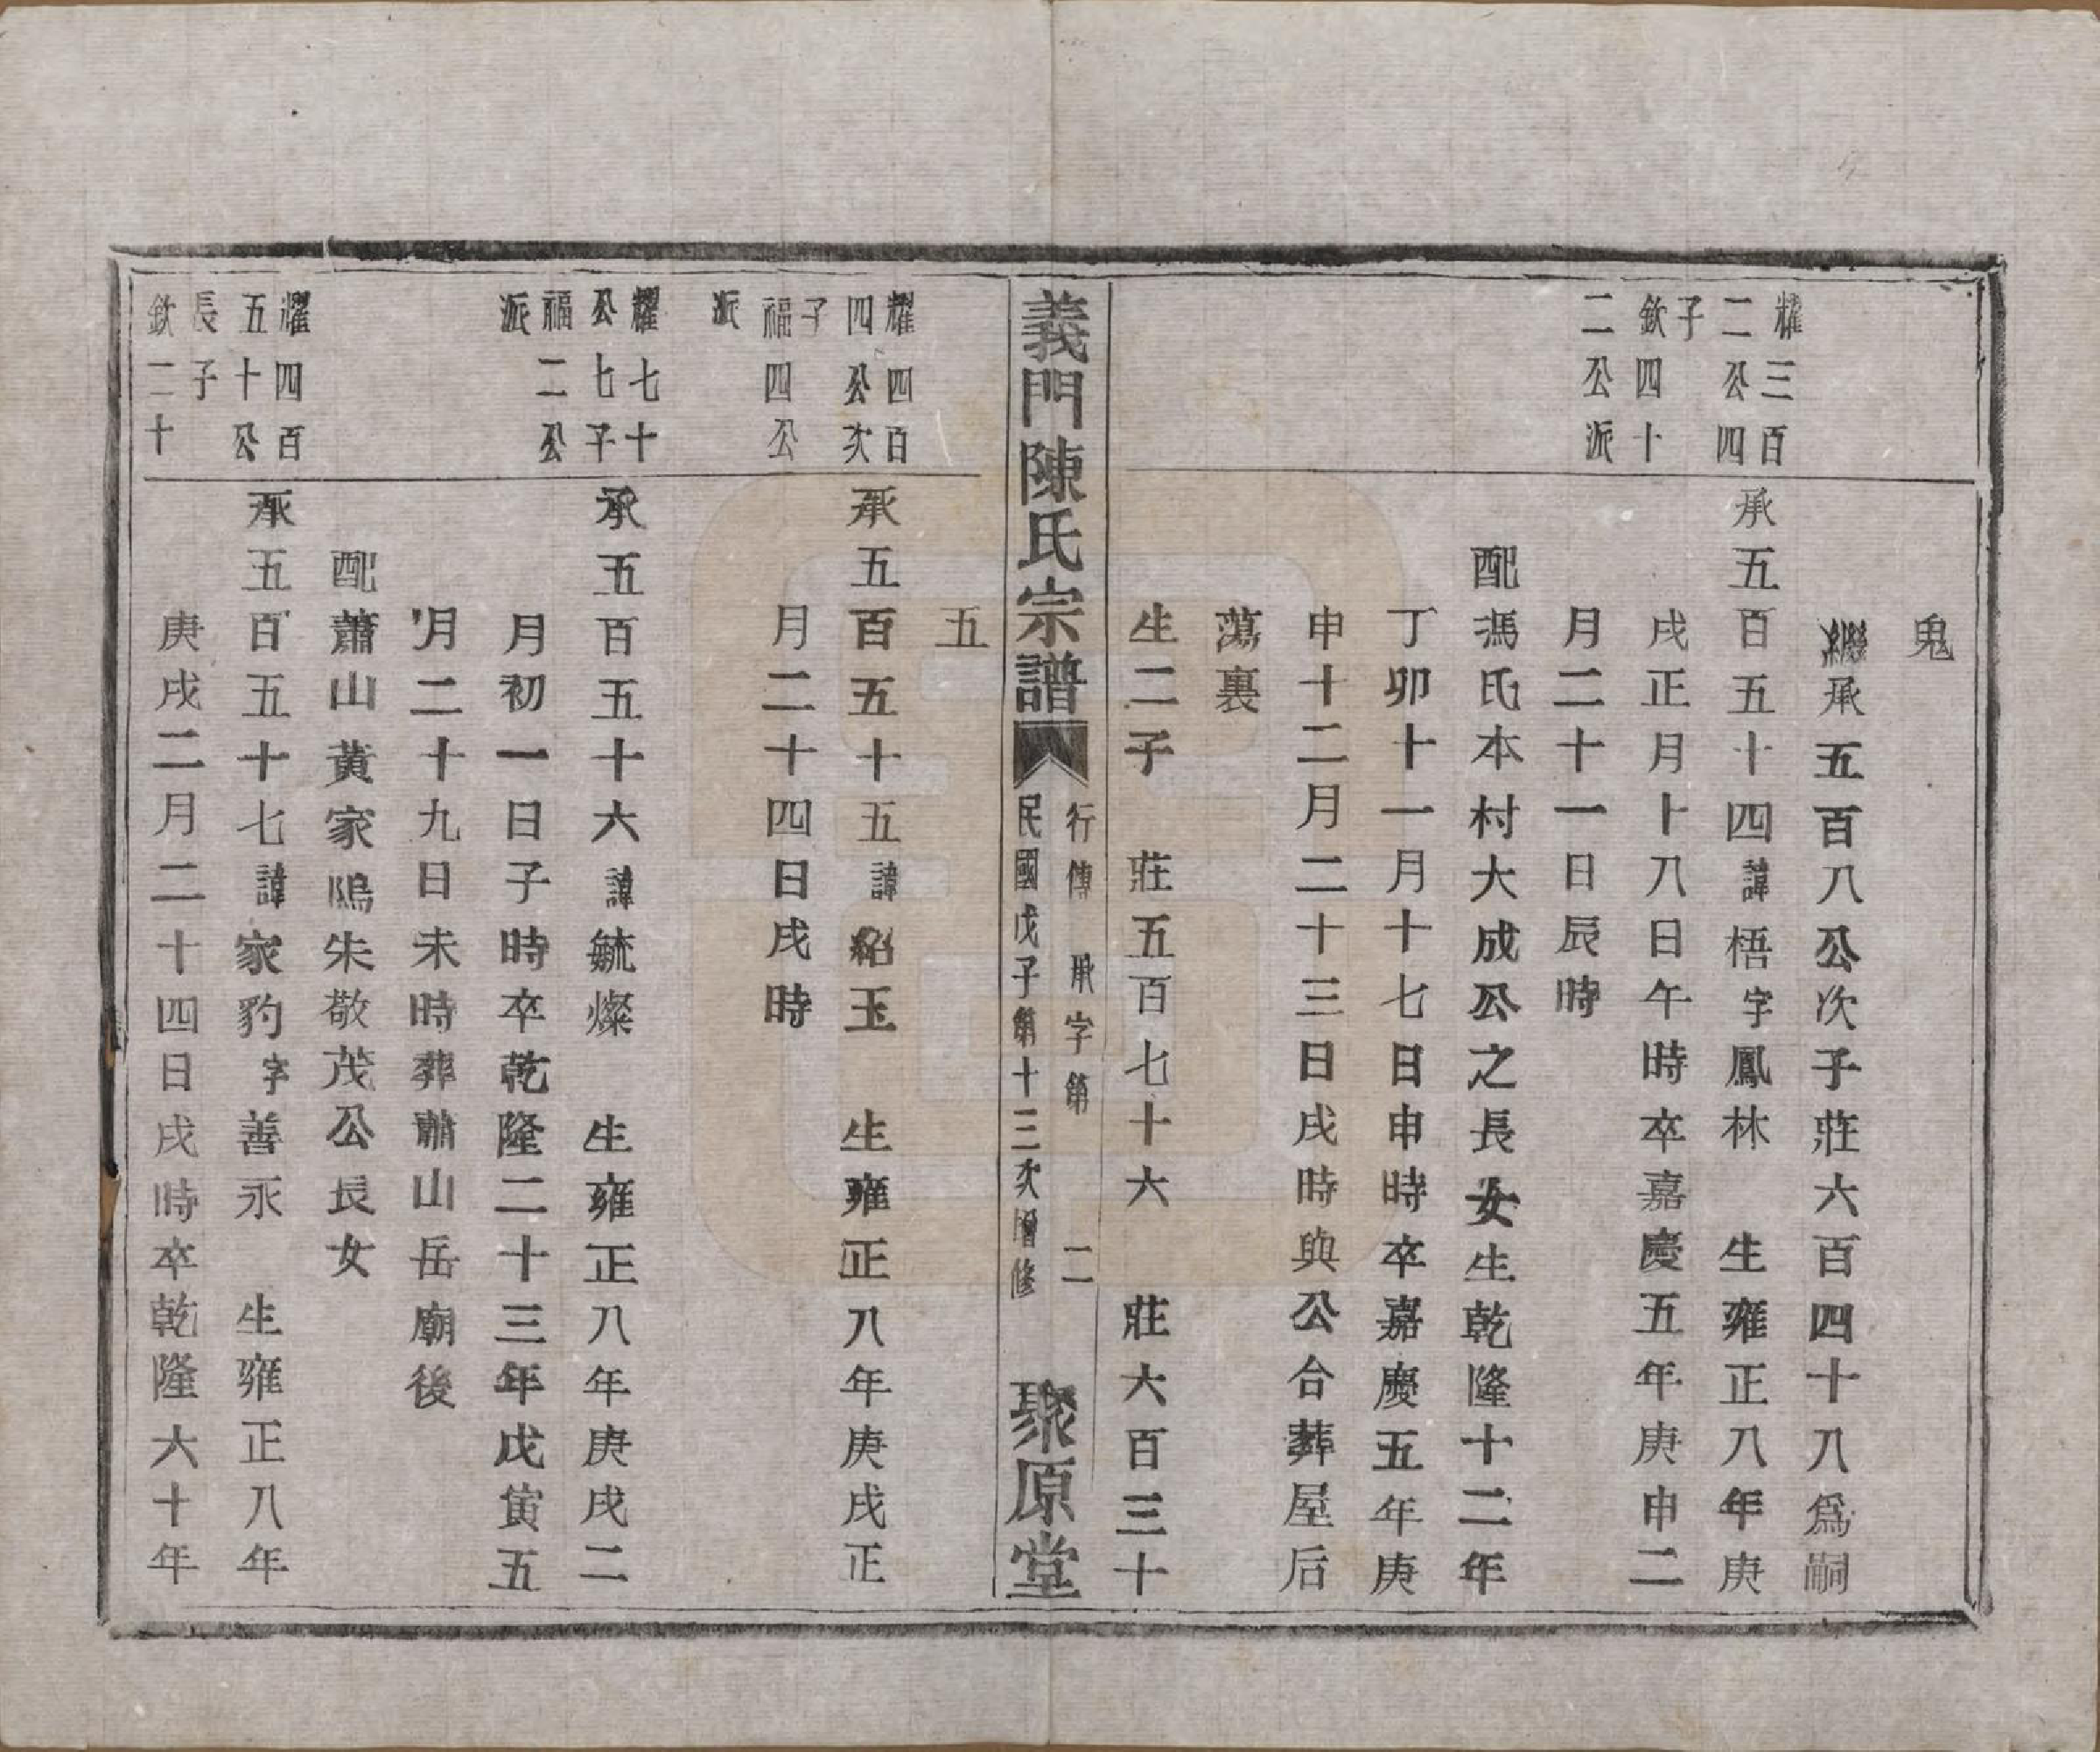 鬼
繼承五百八公次子莊六百四十八爲嗣
耀三百
二公四
子
欽四十
二公派
承五百五十四諱梧字鳳林　生雍正八年庚
戌正月十八日午時卒嘉慶五年庚申二
月二十一日辰時
配馮氏本村大成公之長女生乾隆十二年
丁卯十一月十七日申時卒嘉慶五年庚
申十二月二十三日戌時與公合葬屋后
蕩裏
生二子　莊五百七十六　莊六百三十
義門陳氏宗譜
行傳　承字第　二
民國戊子第十三次增修
聚原堂
五
耀四百
四公次
子
福四公
派
承五百五十五諱紹玉　生雍正八年庚戌正
月二十四日戌時
耀七十
公七子
福二公
派
承五百五十六諱毓燦　生雍正八年庚戌二
月初一日子時卒乾隆二十三年戊寅五
月二十九日未時葬蕭山岳廟後
配蕭山黃家隖朱敬茂公長女
耀四百
五十公
長子
欽二十
承五百五十七諱家豹字善永　生雍正八年
庚戌二月二十四日戌時卒乾隆六十年